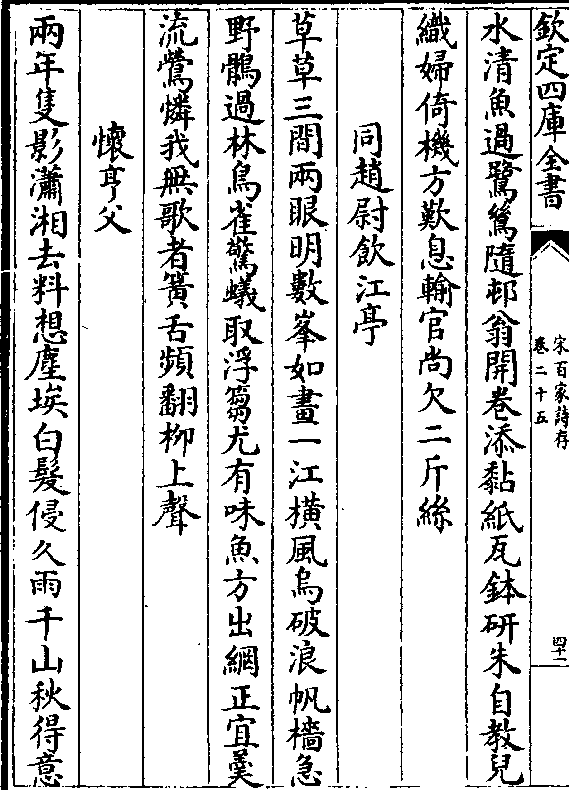 欽定四庫全書
宋百家詩存
卷二十五
四十一
水清魚過鷺鷥隨邨翁開卷添黏紙瓦鉢研朱自教兒
織婦倚機方歎息輸官尚欠二斤絲
同趙尉飲江亭
草草三間兩眼明數峯如畫一江橫風烏破浪帆檣急
野鶻過林鳥雀驚蟻取浮蒭尤有味魚方出網正宜羮
流鶯憐我無歌者簧舌頻翻柳上聲
懷亨父
兩年隻影瀟湘去料想塵埃白髮侵久雨千山秋得意